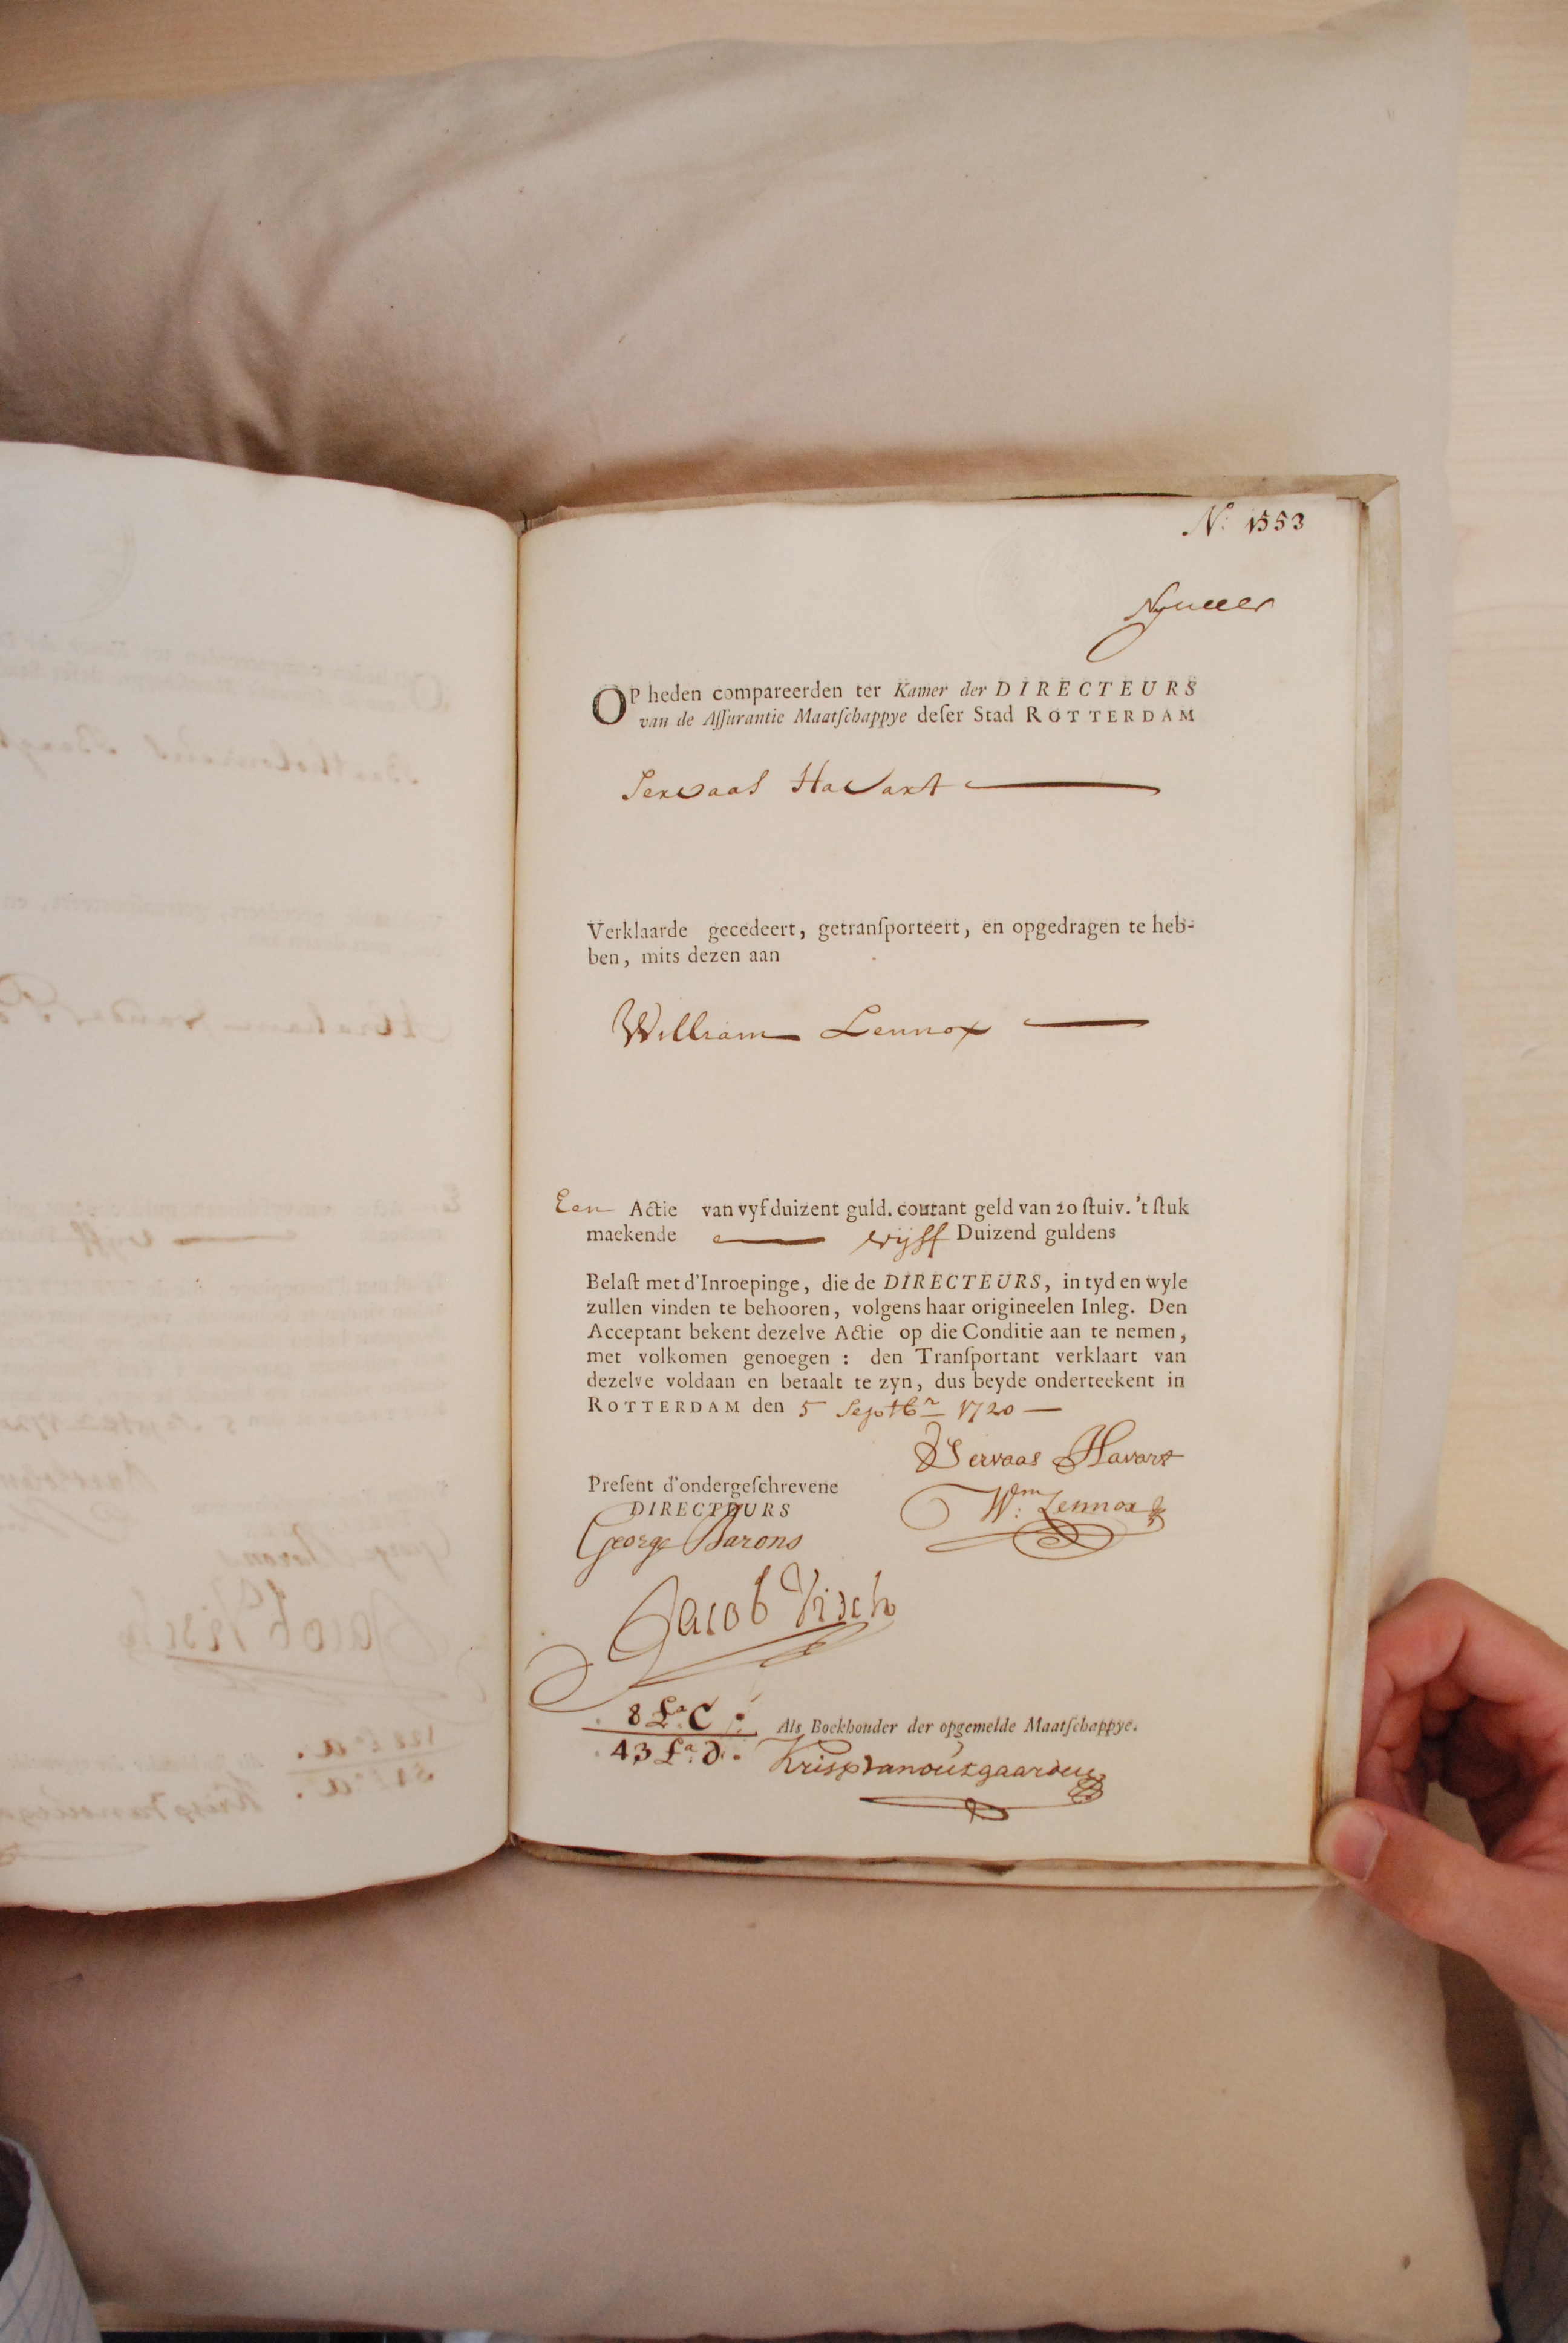 N: 1553
OP heden compareerden ter Kamer der DIRECTEURS
van de Aſſurantie Maatſchappye deſer Stad ROTTERDAM
Servaas Havart
Verklaarde gecedeert, getranſporteert, en opgedragen te heb-
ben, mits dezen aan
William Lennox
Een Actie van vyf duizent guld. courant geld van 20 ſtuiv. 't ſtuk
maekende vyff Duizend guldens
Belaſt met d'Inroepinge, die de DIRECTEURS, in tyd en wyle
zullen vinden te behooren, volgens haar origineelen Inleg. Den
Acceptant bekent dezelve Actie op die Conditie aan te nemen,
met volkomen genoegen : den Tranſportant verklaart van
dezelve voldaan en betaalt te zyn, dus beyde onderteekent in
ROTTERDAM den 5 Septbr 1720
Servaas Havart
Preſent d'ondergeſchrevene
DIRECTEURS
Wm: Lennox
George Barons
Jacob Visch
8 La. C
Als Boekhouder der opgemelde Maatſchappye.
43 La. D.